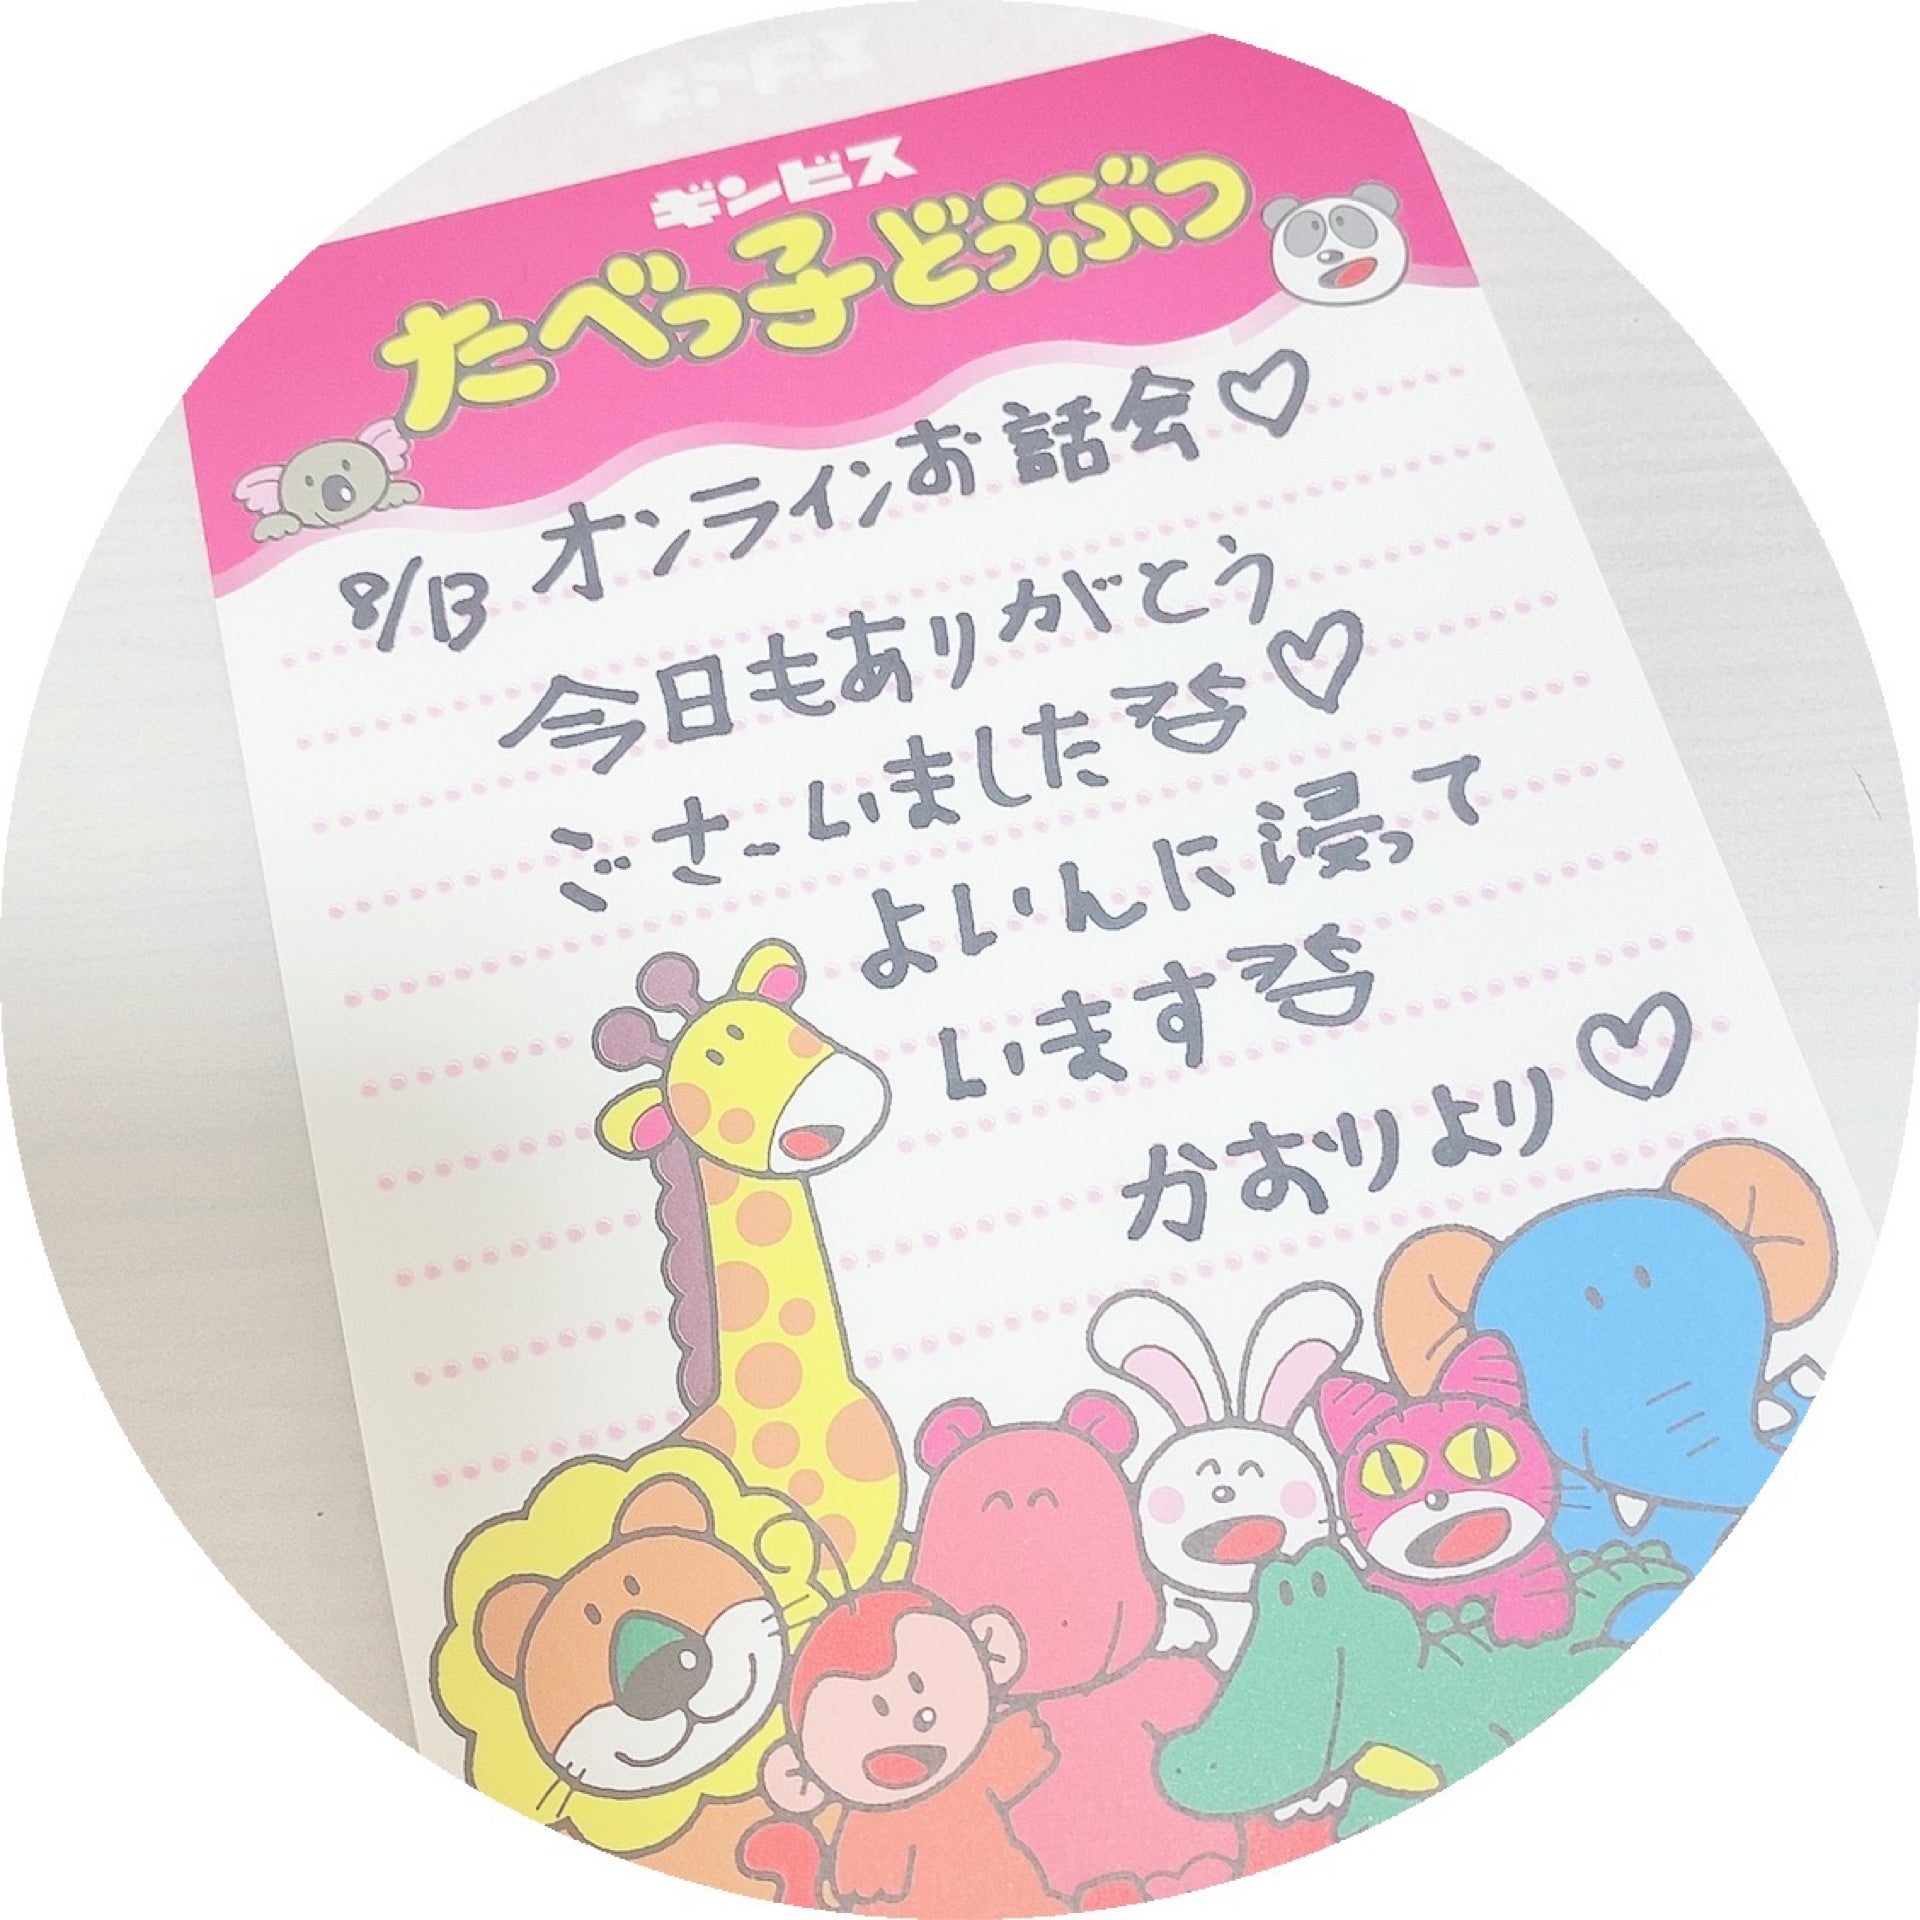 ギンビス
たべっ子どうぶつ
8/13 オンラインお話会♡
今日もありがとう
ございました♡
よいんに浸って
います
かおりより♡